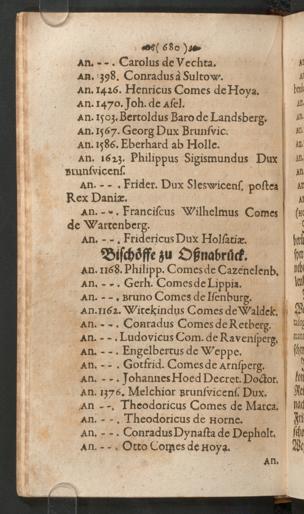 (680)
An. - - . Carolus de Vechta.
An. 1398. Conradus à Sultow.
An. 1426. Henricus Comes de Hoya.
An. 1470. Joh. de Asel.
An. 1503. Bertoldus Baro de Landsberg.
An. 1567. Georg Dux Brunsvic.
An. 1586. Eberhard ab Holle.
An. 1623. Philippus Sigismundus Dux
Brunsvicens.
An. - - . Frider. Dux Sleswicens, postea
Rex Daniæ.
An. - - . Franciscus Wilhelmus Comes
de Wartenberg.
An. - - . Fridericus Dux Holsatiæ.
Bischöffe zu Oßnabrück.
An. 1168. Philipp. Comes de Cazenelenb.
An. - - . Gerh. Comes de Lippia.
An. - - . Bruno Comes de Isenburg.
An. 1162. Witekindus Comes de Waldek.
An. - - . Conradus Comes de Retberg.
An. - - . Ludovicus Com. de Ravensperg.
An. - - . Engelbertus de Weppe.
An. - - . Gotfrid. Comes de Arnsperg.
An. - - . Johannes Hoed Decret. Doctor.
An. 1376. Melchior Brunsvicens. Dux.
An. - - . Theodoricus Comes de Marca.
An. - - . Theodoricus de Horne.
An. - - . Conradus Dynasta de Depholt.
An. - - . Otto Comes de Hoya.
An.